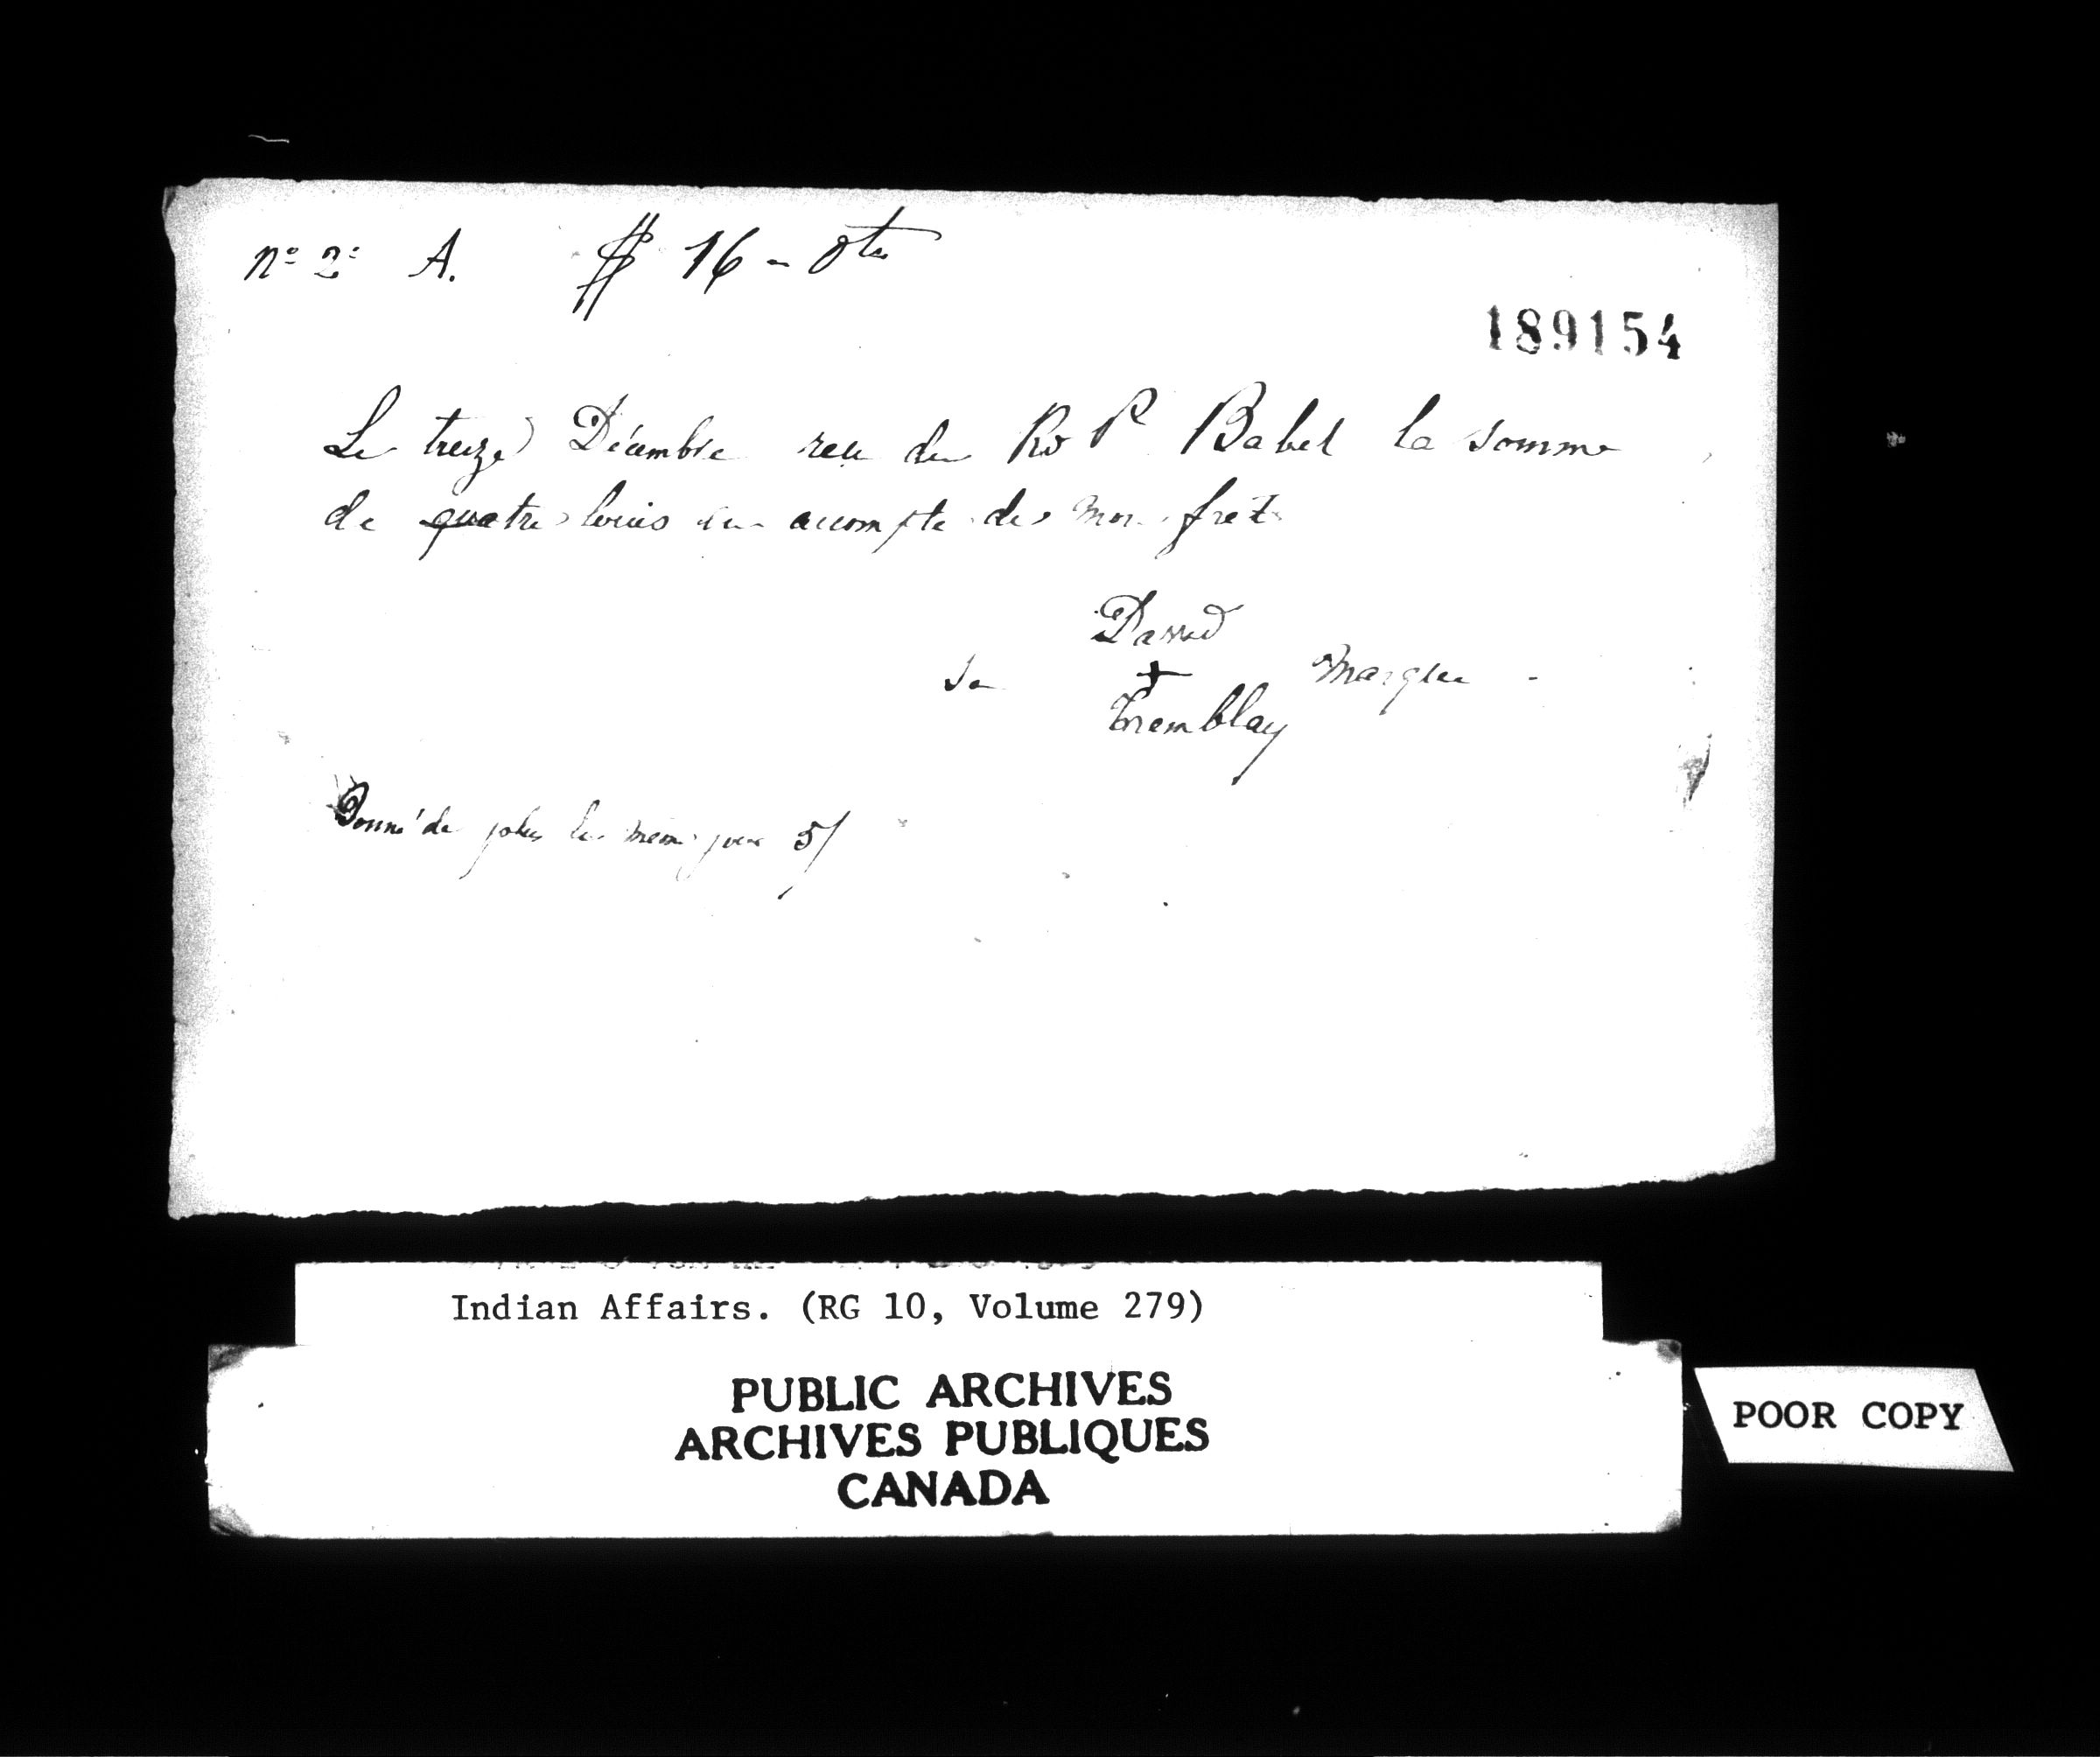 no 2: A. $ 16 - 0ts
189154
Le treize Décembre reçu du Rd P Babel la somme
de quatre louis en accompte de mon fret
David
sa + marque -
Tremblay
Donné de plus le meme jour 5/
Indian Affairs. (RG 10, Volume 279)
PUBLIC ARCHIVES
ARCHIVES PUBLIQUES
CANADA
POOR COPY